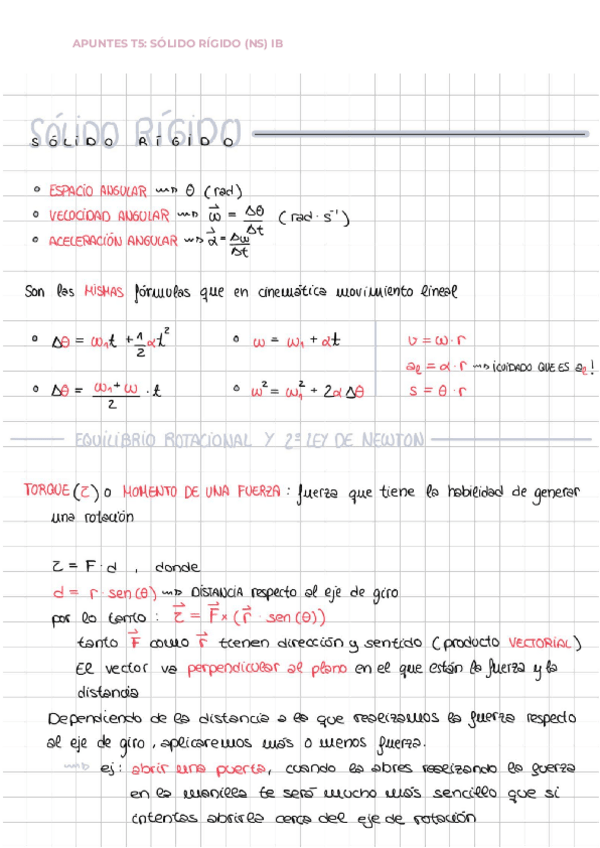 APUNTES T5: SÓLIDO RÍGIDO (NS) IB
SÓLIDO RÍGIDO
SÓLIDO RÍGIDO
° ESPACIO ANGULAR ⟿ θ (rad)
° VELOCIDAD ANGULAR ⟿ ω⃗ = Δθ/Δt (rad·s⁻¹)
° ACELERACIÓN ANGULAR ⟿ α⃗ = Δω/Δt
Son las MISMAS fórmulas que en cinemática movimiento lineal
° Δθ = ω₁t + 1/2 αt² ° ω = ω₁ + αt v = ω·r
aₜ = α·r ⟿ ¡CUIDADO QUE ES aₜ!
° Δθ = (ω₁+ω)/2 · t ° ω² = ω₁² + 2αΔθ s = θ·r
EQUILIBRIO ROTACIONAL Y 2ª LEY DE NEWTON
TORQUE (τ) o MOMENTO DE UNA FUERZA: fuerza que tiene la habilidad de generar
una rotación
τ = F·d , donde
d = r·sen(θ) ⟿ DISTANCIA respecto al eje de giro
por lo tanto : τ⃗ = F⃗ × (r⃗ · sen(θ))
tanto F⃗ como r⃗ tienen dirección y sentido (producto VECTORIAL)
El vector va perpendicular al plano en el que están la fuerza y la
distancia
Dependiendo de la distancia a la que realizamos la fuerza respecto
al eje de giro, aplicaremos más o menos fuerza.
⟿ ej: abrir una puerta, cuando la abres realizando la fuerza
en la manilla te será mucho más sencillo que si
intentas abrirla cerca del eje de rotación